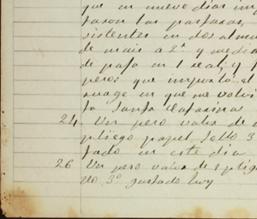 que en nueve dias im
saron las pasadas,
sistentes en dos almu
de mais a 2ª y media
de paja en 1 real, y
pesos: que importó el
suage en que me volví
la Santa Catarina
24 Un peso valor de
pliego papel sello 3
tado en este dia
26 Un peso valor de 1 plieg
llo 3º gastado hoy